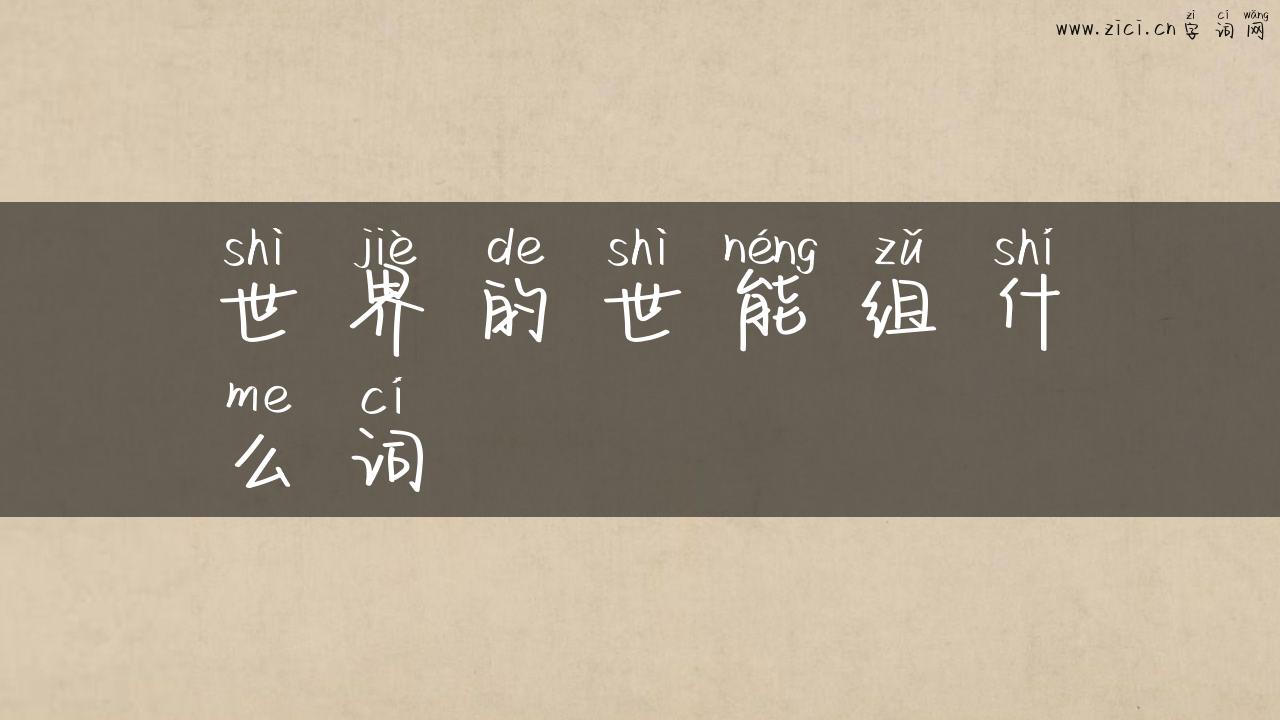 zì cí wǎng
www.zici.cn 字词网
shì jiè de shì néng zǔ shí
世界的世能组什
me cí
么词